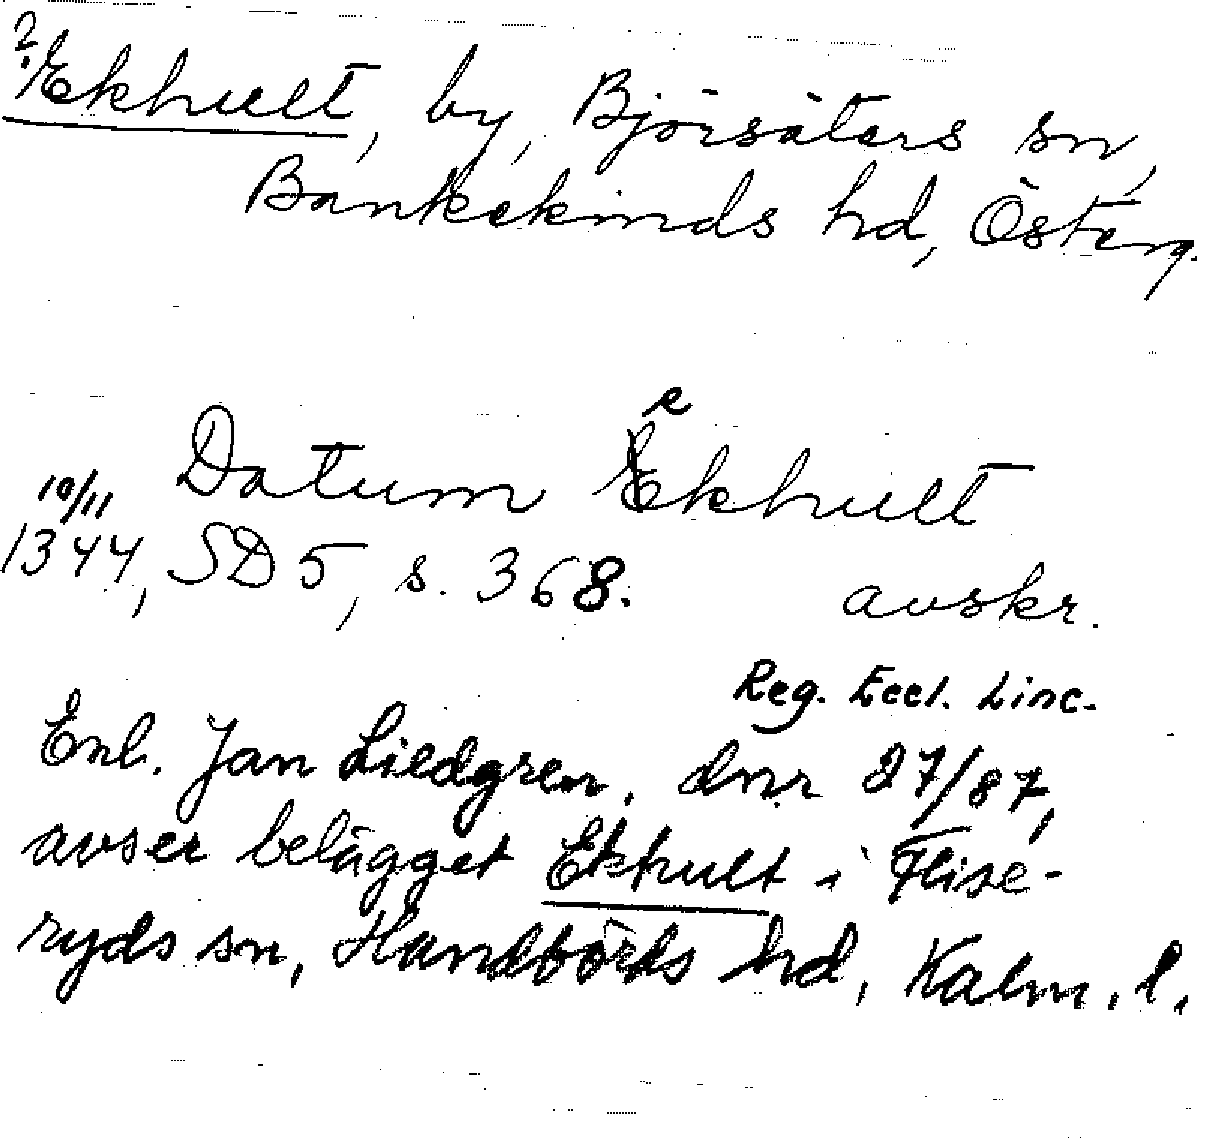 ? Ekhult, by, Björsäters sn,
Bankekinds hd, Österg.
e
Datum Ekhult
10/11
1344, SD 5, s. 368.
avskr.
Reg. Eccl. Linc.
Enl. Jan Liedgren, dnr 27/87,
avser belägget Ekhult i Flise-
ryds sn, Handbörds hd, Kalm. l.